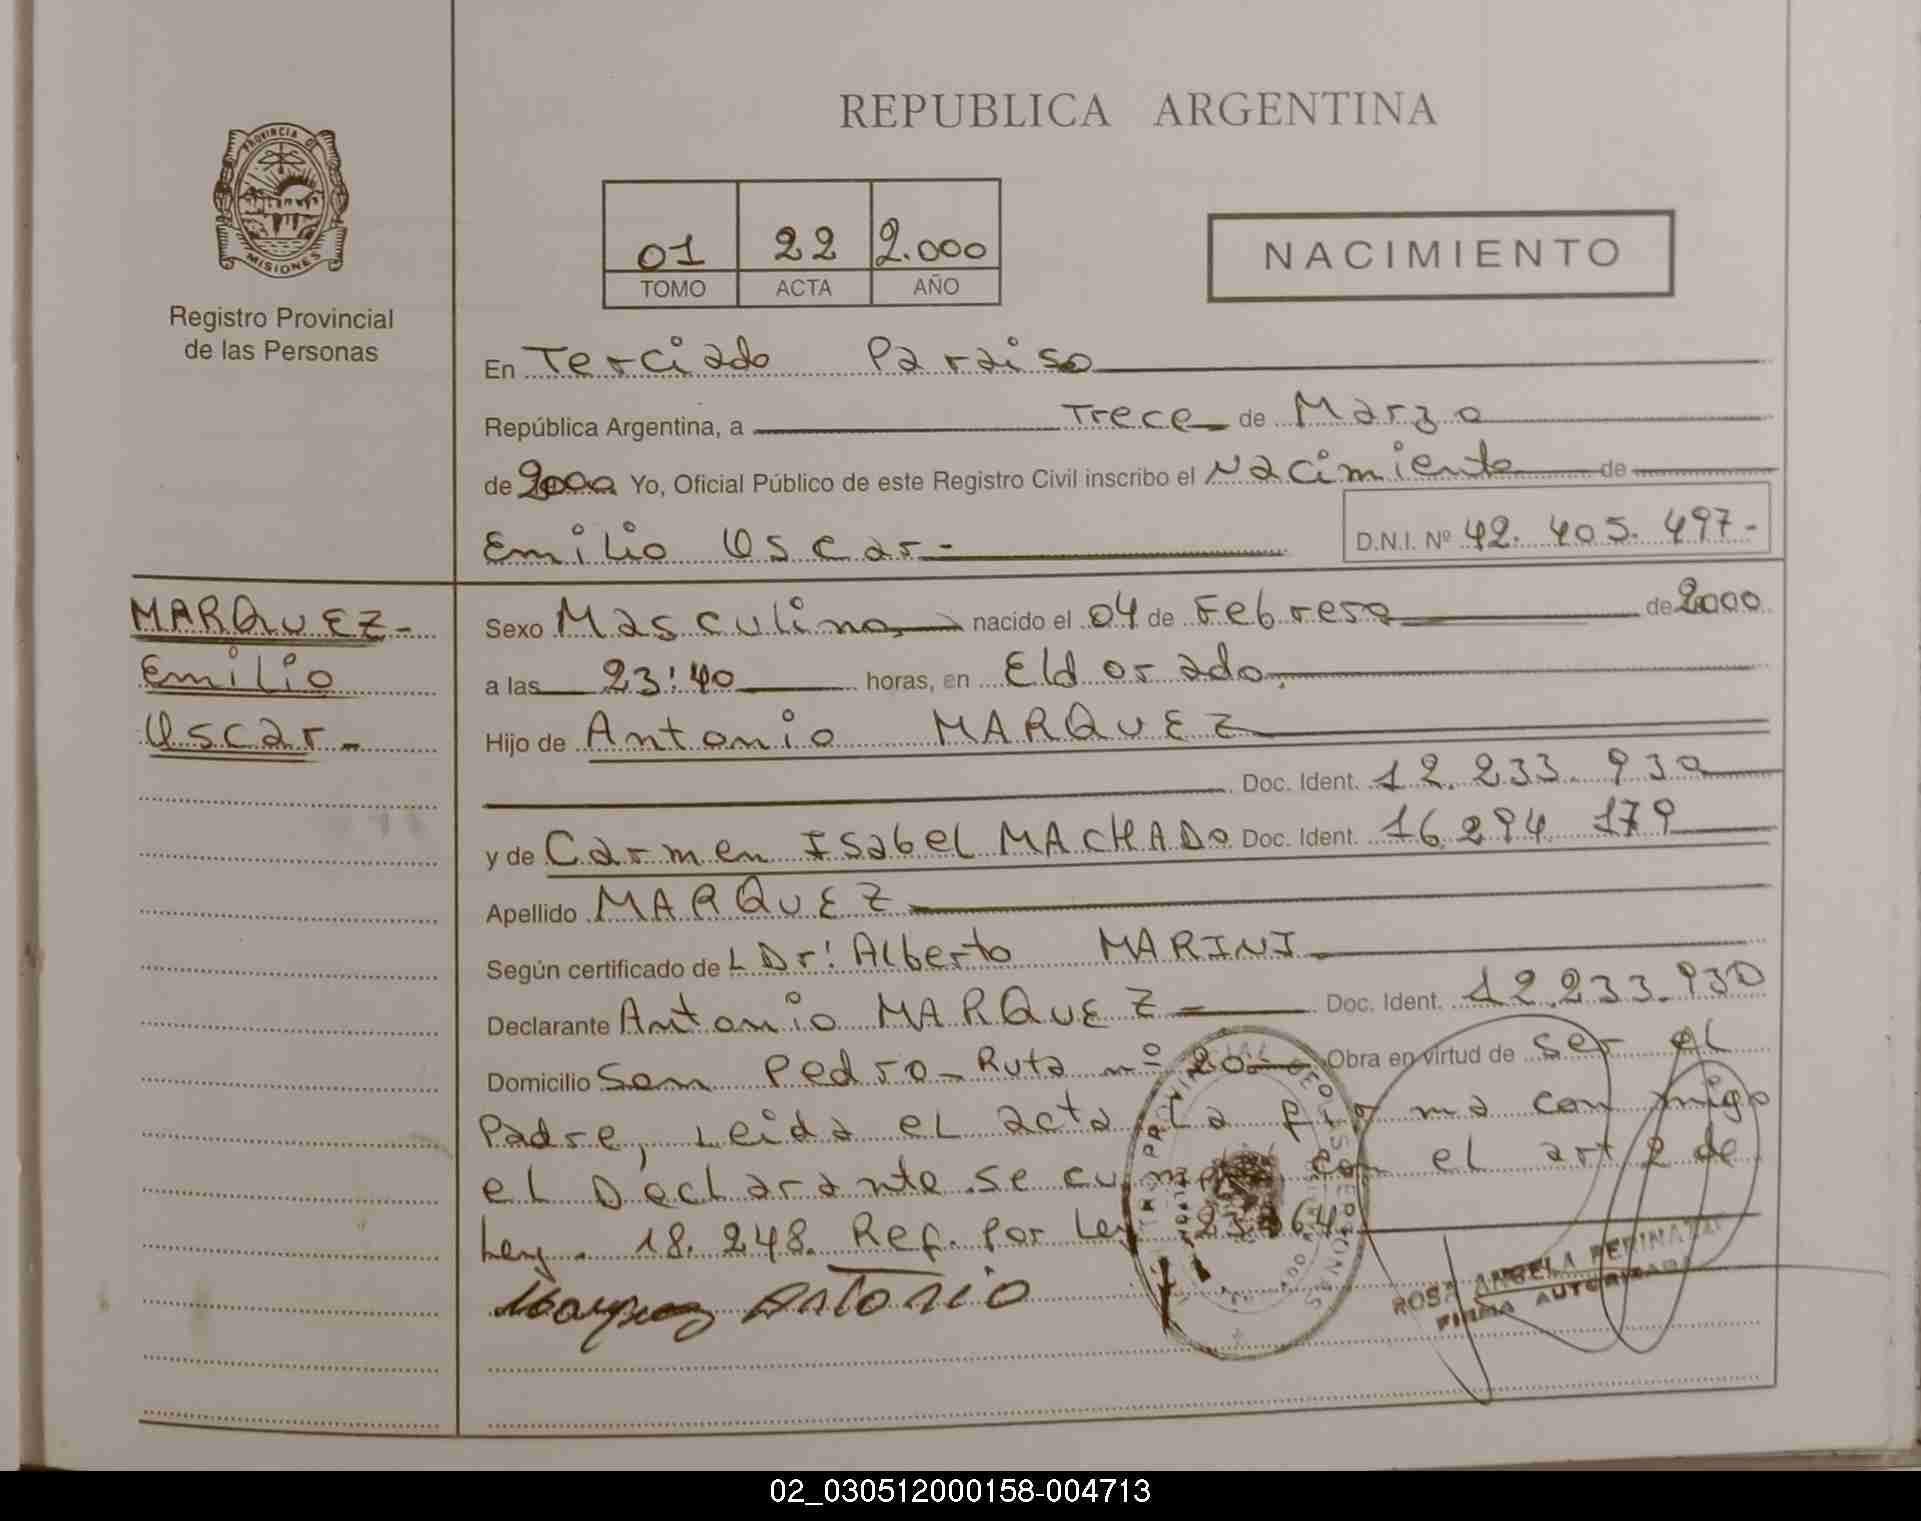 REPUBLICA ARGENTINA
PROVINCIA DE
MISIONES
Registro Provincial
de las Personas
01 22 2.000
TOMO ACTA AÑO
NACIMIENTO
En Terciado Paraiso
República Argentina, a Trece de Marzo
de 2000 Yo, Oficial Público de este Registro Civil inscribo el Nacimiento de
Emilio Oscar- D.N.I. Nº 42. 405. 497-
MARQUEZ-
Emilio
Oscar-
Sexo Masculino nacido el 04 de Febrero de 2000
a las 23:40 horas, en Eldorado.
Hijo de Antonio MARQUEZ
Doc. Ident. 12.233.930
y de Carmen Isabel MACHADO Doc. Ident. 16.294 179
Apellido MARQUEZ
Según certificado de L Dr: Alberto MARINI
Declarante Antonio MARQUEZ Doc. Ident. 12.233.930
Domicilio San Pedro-Ruta nº 20 Obra en virtud de ser el
Padre, Leida el acta La firma conmigo
el Declarante.se cumple con el art 2 de
Ley. 18.248. Ref. Por Ley 23 64
Marquez Antonio
ROSA ANGELA
FIRMA AUTORIZADA
02_030512000158-004713